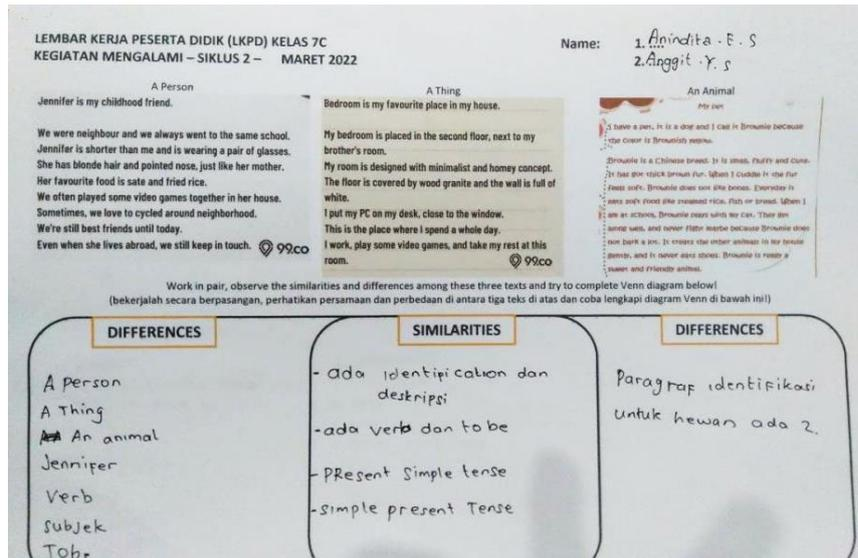 LEMBAR KERJA PESERTA DIDIK (LKPD) KELAS 7C
KEGIATAN MENGALAMI – SIKLUS 2 – MARET 2022
Name:
1. Anindita . E . S
2. Anggit . Y. S
A Person
Jennifer is my childhood friend.
We were neighbour and we always went to the same school.
Jennifer is shorter than me and is wearing a pair of glasses.
She has blonde hair and pointed nose, just like her mother.
Her favourite food is sate and fried rice.
We often played some video games together in her house.
Sometimes, we love to cycled around neighborhood.
We're still best friends until today.
Even when she lives abroad, we still keep in touch.
99.co
A Thing
Bedroom is my favourite place in my house.
My bedroom is placed in the second floor, next to my
brother's room.
My room is designed with minimalist and homey concept.
The floor is covered by wood granite and the wall is full of
white.
I put my PC on my desk, close to the window.
This is the place where I spend a whole day.
I work, play some video games, and take my rest at this
room.
99.co
An Animal
My pet
I have a pet, it is a dog and I call it Brownie because
the color is Brownish yellow.
Brownie is a Chinese breed. It is small, fluffy and cute.
It has got thick brown fur. When I cuddle it the fur
feels soft. Brownie does not like bones. Everyday it
eats soft food like steamed rice, fish or bread. When I
am at school, Brownie plays with my cat. They
along well, and never fight maybe because Brownie does
not bark a lot. It treats the other animals in my house
gently, and it never eats shoes. Brownie is really a
sweet and friendly animal.
Work in pair, observe the similarities and differences among these three texts and try to complete Venn diagram below!
(bekerjalah secara berpasangan, perhatikan persamaan dan perbedaan di antara tiga teks di atas dan coba lengkapi diagram Venn di bawah ini!)
DIFFERENCES
A Person
A Thing
An animal
Jennifer
Verb
Subjek
Tobe
SIMILARITIES
- ada identification dan
deskripsi
- ada verb dan to be
- PResent Simple tense
- simple present Tense
DIFFERENCES
Paragraf identifikasi
untuk hewan ada 2.